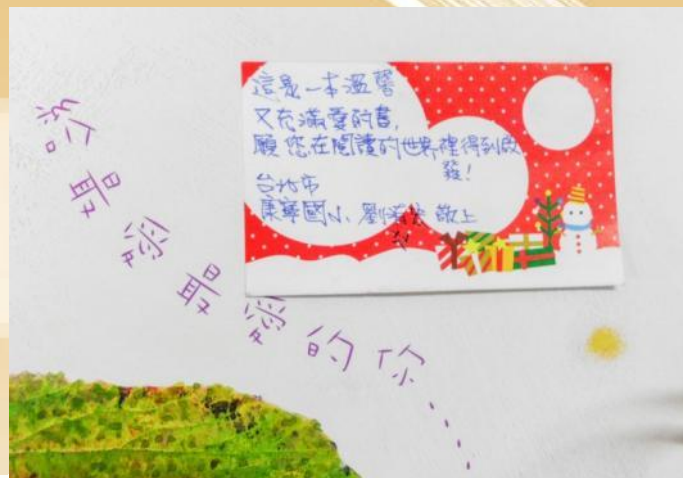 給最愛最愛的你……
這是一本溫馨
又充滿愛的書,
願您在閱讀的世界裡得到啟
發!
台北市
康寧國小 劉 敬上